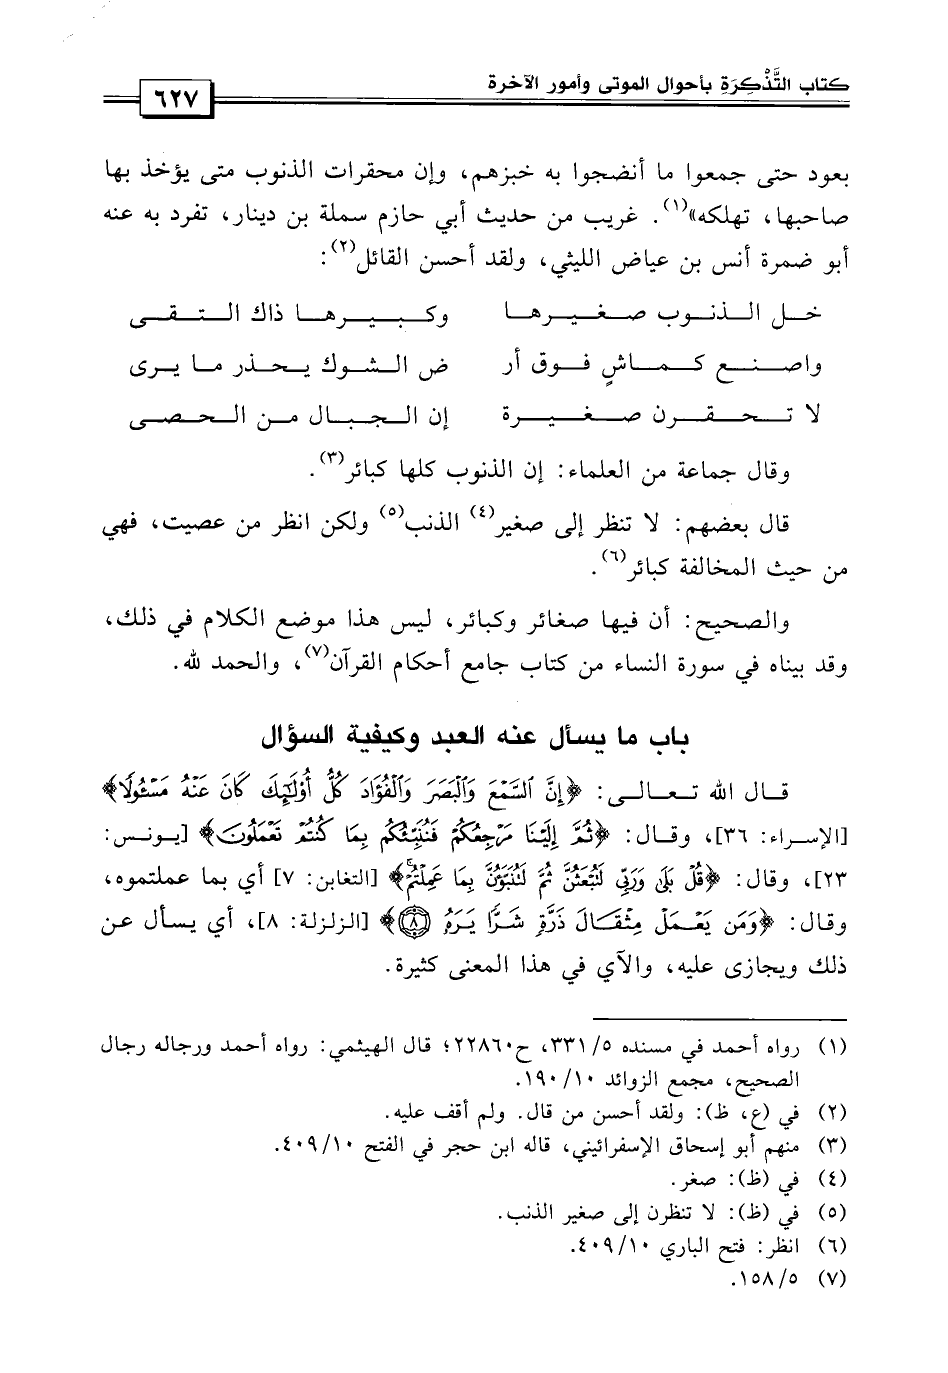 كتاب التَّذْكِرَةِ بأحوال الموتى وأمور الآخرة
٦٢٧
بعود حتى جمعوا ما أنضجوا به خبزهم، وإن محقرات الذنوب متى يؤخذ بها
صاحبها، تهلكه»(١). غريب من حديث أبي حازم سملة بن دينار، تفرد به عنه
أبو ضمرة أنس بن عياض الليثي، ولقد أحسن القائل(٢):
خـل الـذنـوب صـغـيـرهـا وكـبـيـرهـا ذاك الـتـقـى
واصـنـع كـمـاشٍ فـوق أر ض الـشـوك يـحـذر مـا يـرى
لا تـحـقـرن صـغـيـرة إن الـجـبـال مـن الـحـصـى
وقال جماعة من العلماء: إن الذنوب كلها كبائر(٣).
قال بعضهم: لا تنظر إلى صغير(٤) الذنب(٥) ولكن انظر من عصيت، فهي
من حيث المخالفة كبائر(٦).
والصحيح: أن فيها صغائر وكبائر، ليس هذا موضع الكلام في ذلك،
وقد بيناه في سورة النساء من كتاب جامع أحكام القرآن(٧)، والحمد لله.
باب ما يسأل عنه العبد وكيفية السؤال
قـال الله تـعـالـى: ﴿إِنَّ السَّمْعَ وَالْبَصَرَ وَالْفُؤَادَ كُلُّ أُوْلَٰٓئِكَ كَانَ عَنْهُ مَسْئُولًا﴾
[الإسراء: ٣٦]، وقـال: ﴿ثُمَّ إِلَيْنَا مَرْجِعُكُمْ فَنُنَبِّئُكُم بِمَا كُنتُمْ تَعْمَلُونَ﴾ [يـونـس:
٢٣]، وقال: ﴿قُلْ بَلَىٰ وَرَبِّي لَتُبْعَثُنَّ ثُمَّ لَتُنَبَّؤُنَّ بِمَا عَمِلْتُمْ﴾ [التغابن: ٧] أي بما عملتموه،
وقال: ﴿وَمَن يَعْمَلْ مِثْقَالَ ذَرَّةٍ شَرًّا يَرَهُ ٨﴾ [الزلزلة: ٨]، أي يسأل عن
ذلك ويجازى عليه، والآي في هذا المعنى كثيرة.
(١) رواه أحمد في مسنده ٥/ ٣٣١، ح٢٢٨٦٠؛ قال الهيثمي: رواه أحمد ورجاله رجال
الصحيح، مجمع الزوائد ١٠/ ١٩٠.
(٢) في (ع، ظ): ولقد أحسن من قال. ولم أقف عليه.
(٣) منهم أبو إسحاق الإسفرائيني، قاله ابن حجر في الفتح ١٠/ ٤٠٩.
(٤) في (ظ): صغر.
(٥) في (ظ): لا تنظرن إلى صغير الذنب.
(٦) انظر: فتح الباري ١٠/ ٤٠٩.
(٧) ٥/ ١٥٨.